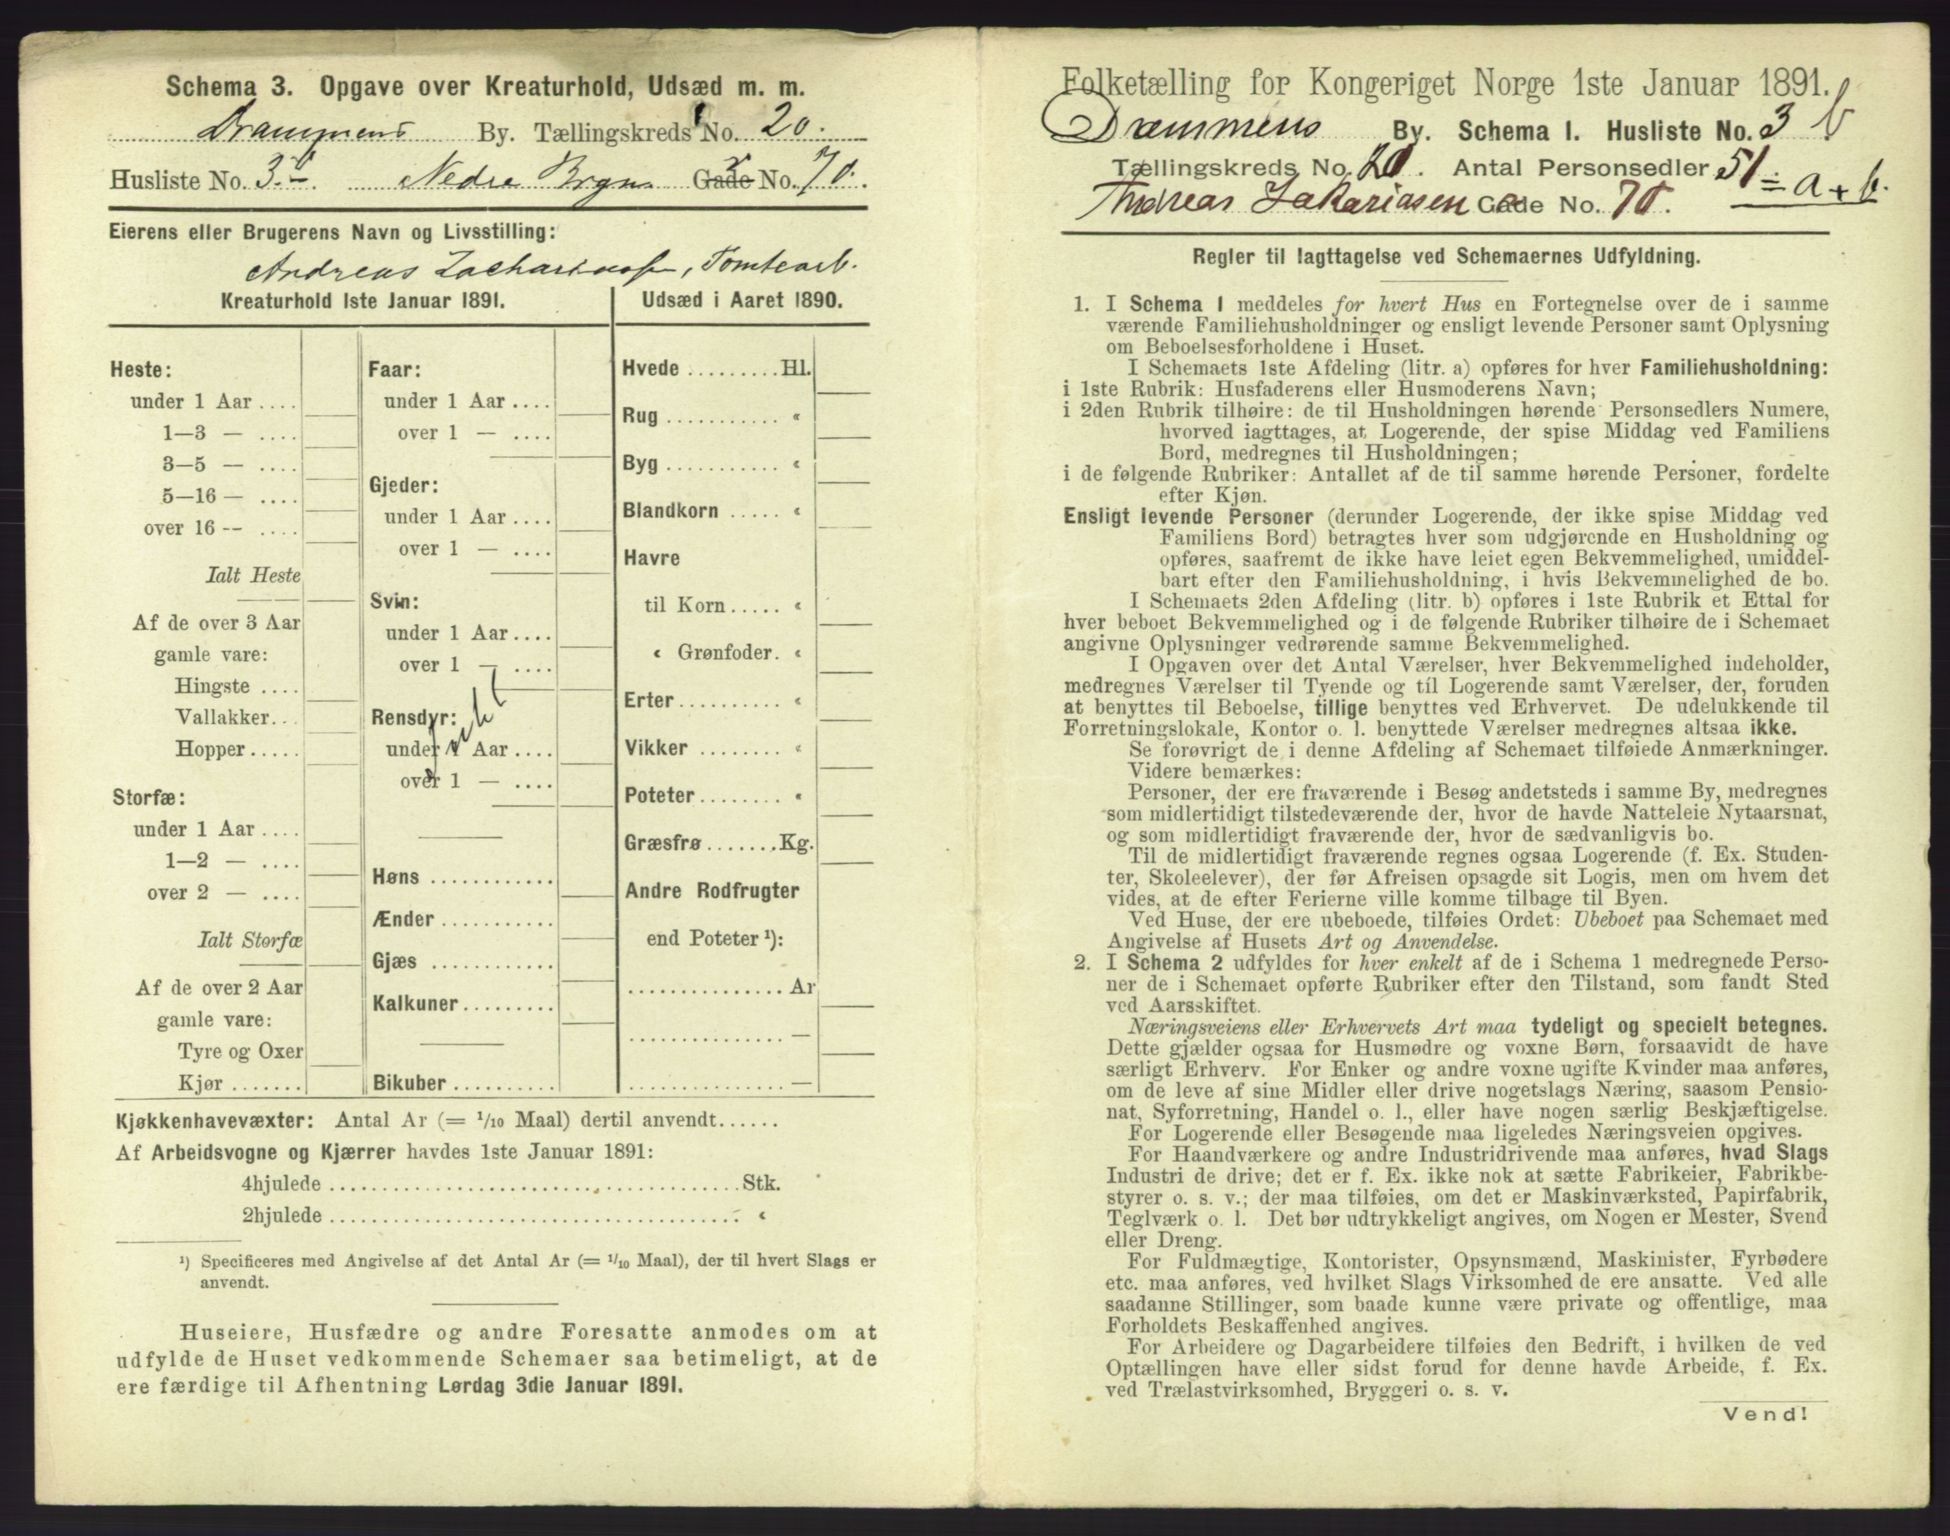 Schema 3. Opgave over Kreaturhold, Udsæd m. m.
Drammens By. Tællingskreds No. 20.
Husliste No. 3. Nedre Gade No. 70.
Eierens eller Brugerens Navn og Livsstilling:
Andreas Zachariassen, Tomtearb.
Kreaturhold 1ste Januar 1891.
Heste:
under 1 Aar ....
1—3 — ....
3—5 — ....
5—16 — ....
over 16 -- ....
Ialt Heste
Af de over 3 Aar
gamle vare:
Hingste ....
Vallakker...
Hopper.....
Storfæ:
under 1 Aar ....
1—2 — ....
over 2 — ....
Ialt Storfæ
Af de over 2 Aar
gamle vare:
Tyre og Oxer
Kjør .......
Faar:
under 1 Aar ....
over 1 — ....
Gjeder:
under 1 Aar ....
over 1 — ....
Svin:
under 1 Aar ....
over 1 — ....
Rensdyr:
under 1 Aar ....
over 1 — ....
Høns ............
Ænder ...........
Gjæs ............
Kalkuner.........
Bikuber ..........
Udsæd i Aaret 1890.
Hvede ......... Hl.
Rug ........... «
Byg ........... «
Blandkorn ..... «
Havre
til Korn ..... «
« Grønfoder. «
Erter.......... «
Vikker ........ «
Poteter........ «
Græsfrø .......Kg.
Andre Rodfrugter
end Poteter ¹):
............... Ar
............... —
............... —
Kjøkkenhavevæxter: Antal Ar (= 1/10 Maal) dertil anvendt......
Af Arbeidsvogne og Kjærrer havdes 1ste Januar 1891:
4hjulede ........................................ Stk.
2hjulede ........................................ «
¹) Specificeres med Angivelse af det Antal Ar (= 1/10 Maal), der til hvert Slags er
anvendt.
Huseiere, Husfædre og andre Foresatte anmodes om at
udfylde de Huset vedkommende Schemaer saa betimeligt, at de
ere færdige til Afhentning Lørdag 3die Januar 1891.
Folketælling for Kongeriget Norge 1ste Januar 1891.
Drammens By. Schema 1. Husliste No. 3 b
Tællingskreds No. 20. Antal Personsedler 51 = a + b.
Andreas Zakariasen Gade No. 70.
Regler til Iagttagelse ved Schemaernes Udfyldning.
1. I Schema 1 meddeles for hvert Hus en Fortegnelse over de i samme
værende Familiehusholdninger og ensligt levende Personer samt Oplysning
om Beboelsesforholdene i Huset.
I Schemaets 1ste Afdeling (litr. a) opføres for hver Familiehusholdning:
i 1ste Rubrik: Husfaderens eller Husmoderens Navn;
i 2den Rubrik tilhøire: de til Husholdningen hørende Personsedlers Numere,
hvorved iagttages, at Logerende, der spise Middag ved Familiens
Bord, medregnes til Husholdningen;
i de følgende Rubriker: Antallet af de til samme hørende Personer, fordelte
efter Kjøn.
Ensligt levende Personer (derunder Logerende, der ikke spise Middag ved
Familiens Bord) betragtes hver som udgjørende en Husholdning og
opføres, saafremt de ikke have leiet egen Bekvemmelighed, umiddel-
bart efter den Familiehusholdning, i hvis Bekvemmelighed de bo.
I Schemaets 2den Afdeling (litr. b) opføres i 1ste Rubrik et Ettal for
hver beboet Bekvemmelighed og i de følgende Rubriker tilhøire de i Schemaet
angivne Oplysninger vedrørende samme Bekvemmelighed.
I Opgaven over det Antal Værelser, hver Bekvemmelighed indeholder,
medregnes Værelser til Tyende og til Logerende samt Værelser, der, foruden
at benyttes til Beboelse, tillige benyttes ved Erhvervet. De udelukkende til
Forretningslokale, Kontor o. l. benyttede Værelser medregnes altsaa ikke.
Se forøvrigt de i denne Afdeling af Schemaet tilføiede Anmærkninger.
Videre bemærkes:
Personer, der ere fraværende i Besøg andetsteds i samme By, medregnes
som midlertidigt tilstedeværende der, hvor de havde Natteleie Nytaarsnat,
og som midlertidigt fraværende der, hvor de sædvanligvis bo.
Til de midlertidigt fraværende regnes ogsaa Logerende (f. Ex. Studen-
ter, Skoleelever), der før Afreisen opsagde sit Logis, men om hvem det
vides, at de efter Ferierne ville komme tilbage til Byen.
Ved Huse, der ere ubeboede, tilføies Ordet: Ubeboet paa Schemaet med
Angivelse af Husets Art og Anvendelse.
2. I Schema 2 udfyldes for hver enkelt af de i Schema 1 medregnede Perso-
ner de i Schemaet opførte Rubriker efter den Tilstand, som fandt Sted
ved Aarsskiftet.
Næringsveiens eller Erhvervets Art maa tydeligt og specielt betegnes.
Dette gjælder ogsaa for Husmødre og voxne Børn, forsaavidt de have
særligt Erhverv. For Enker og andre voxne ugifte Kvinder maa anføres,
om de leve af sine Midler eller drive nogetslags Næring, saasom Pensio-
nat, Syforretning, Handel o. l., eller have nogen særlig Beskjæftigelse.
For Logerende eller Besøgende maa ligeledes Næringsveien opgives.
For Haandværkere og andre Industridrivende maa anføres, hvad Slags
Industri de drive; det er f. Ex. ikke nok at sætte Fabrikeier, Fabrikbe-
styrer o. s. v.; der maa tilføies, om det er Maskinværksted, Papirfabrik,
Teglværk o. l. Det bør udtrykkeligt angives, om Nogen er Mester, Svend
eller Dreng.
For Fuldmægtige, Kontorister, Opsynsmænd, Maskinister, Fyrbødere
etc. maa anføres, ved hvilket Slags Virksomhed de ere ansatte. Ved alle
saadanne Stillinger, som baade kunne være private og offentlige, maa
Forholdets Beskaffenhed angives.
For Arbeidere og Dagarbeidere tilføies den Bedrift, i hvilken de ved
Optællingen have eller sidst forud for denne havde Arbeide, f. Ex.
ved Trælastvirksomhed, Bryggeri o. s. v.
Vend!